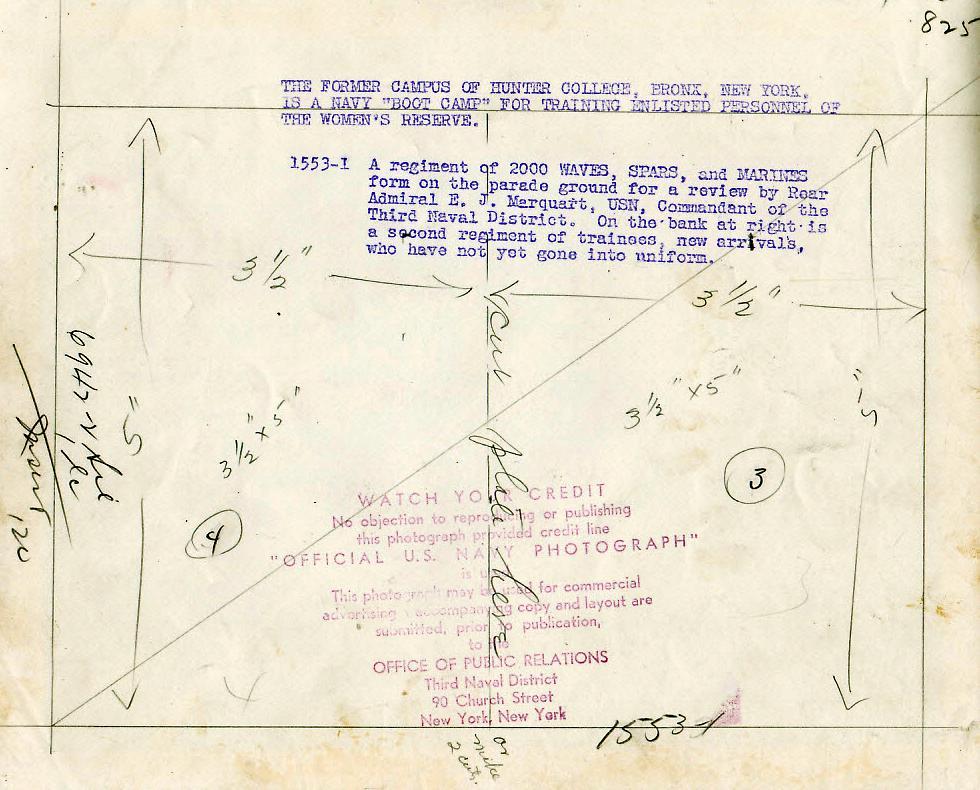 825
THE FORMER CAMPUS OF HUNTER COLLEGE, BRONX, NEW YORK,
IS A NAVY "BOOT CAMP" FOR TRAINING ENLISTED PERSONNEL OF
THE WOMEN'S RESERVE.
1553-1 A regiment of 2000 WAVES, SPARS, and MARINES
form on the parade ground for a review by Rear
Admiral E. J. Marquart, USN, Commandant of the
Third Naval District. On the bank at right is
a second regiment of trainees, new arrivals,
who have not yet gone into uniform.
3 1/2"
3 1/2"
cut plate here
5"
5"
3 1/2" x 5"
3 1/2" x 5"
3
4
WATCH YOUR CREDIT
No objection to reproducing or publishing
this photograph provided credit line
"OFFICIAL U.S. NAVY PHOTOGRAPH"
is
This photograph may be used for commercial
advertising accompanying copy and layout are
submitted, prior to publication,
to the
OFFICE OF PUBLIC RELATIONS
Third Naval District
90 Church Street
New York, New York
1553-1
or
make
2 cuts